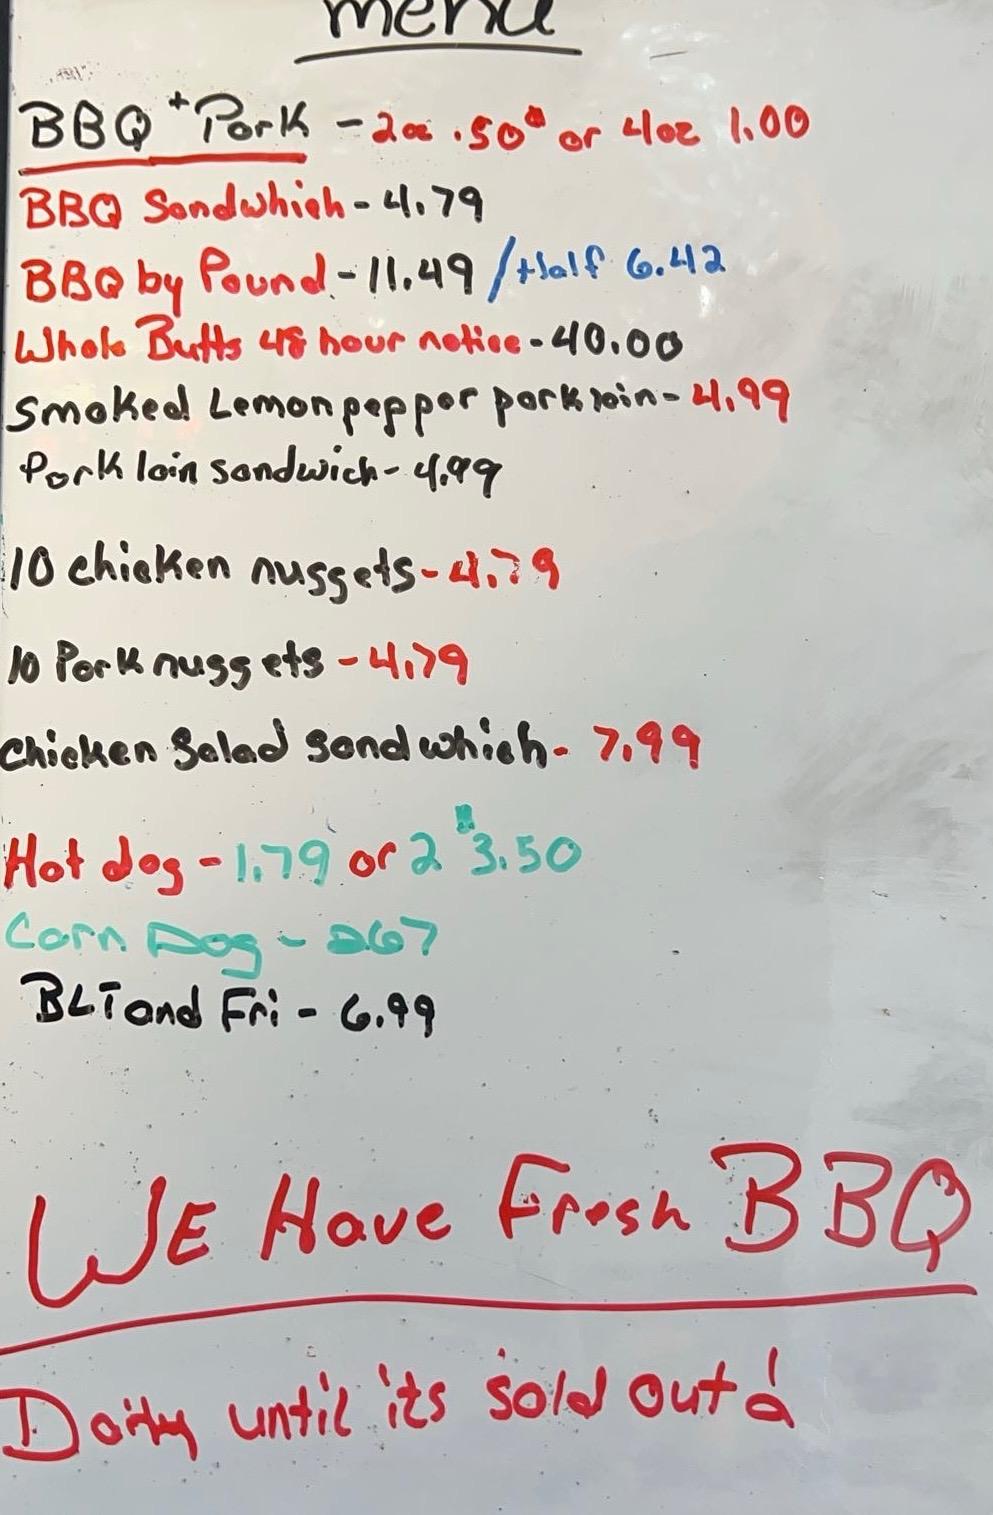 menu
BBQ + Pork - 2oz .50¢ or 4oz 1.00
BBQ Sandwhich - 4.79
BBQ by Pound - 11.49 / Half 6.42
Whole Butts 48 hour notice - 40.00
Smoked Lemon pepper pork loin - 4.99
Pork loin sandwich - 4.99
10 chicken nuggets - 4.79
10 Pork nuggets - 4.79
Chicken Salad Sandwhich - 7.99
Hot dog - 1.79 or 2 3.50
Corn Dog - 267
BLT and Fri - 6.99
WE Have Fresh BBQ
Daily until its sold out!